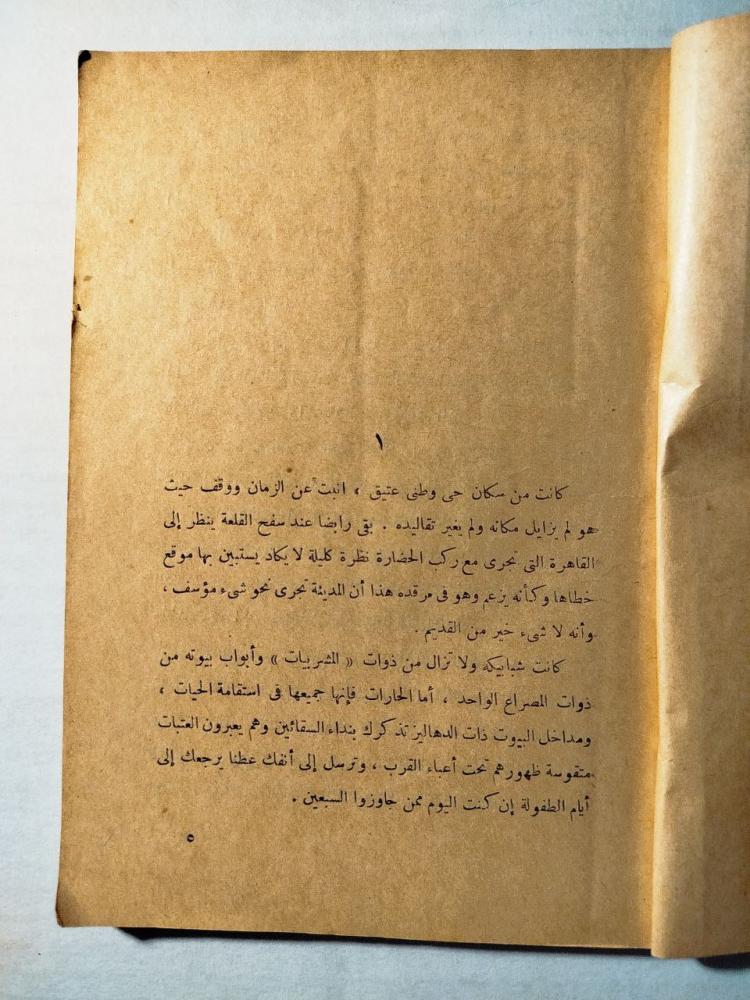 ١
كانت من سكان حى وطنى عتيق ، انبت عن الزمان ووقف حيث
هو لم يزايل مكانه ولم يغير تقاليده . بقى رابضا عند سفح القلعة ينظر إلى
القاهرة التى تجرى مع ركب الحضارة نظرة كليلة لا يكاد يستبين بها موقع
خطاها وكأنه يزعم وهو فى مرقده هذا أن المدينة تجرى نحو شىء مؤسف ،
وأنه لا شىء خير من القديم .
كانت شبابيكه ولا تزال من ذوات « المشربيات » وأبواب بيوته من
ذوات المصراع الواحد ، أما الحارات فإنها جميعها فى استقامة الحيات ،
ومداخل البيوت ذات الدهاليز تذكرك بنداء السقائين وهم يعبرون العتبات
متقوسة ظهورهم تحت أعباء القرب ، وترسل إلى أنفك عطنا يرجعك إلى
أيام الطفولة إن كنت اليوم ممن جاوزوا السبعين .
٥